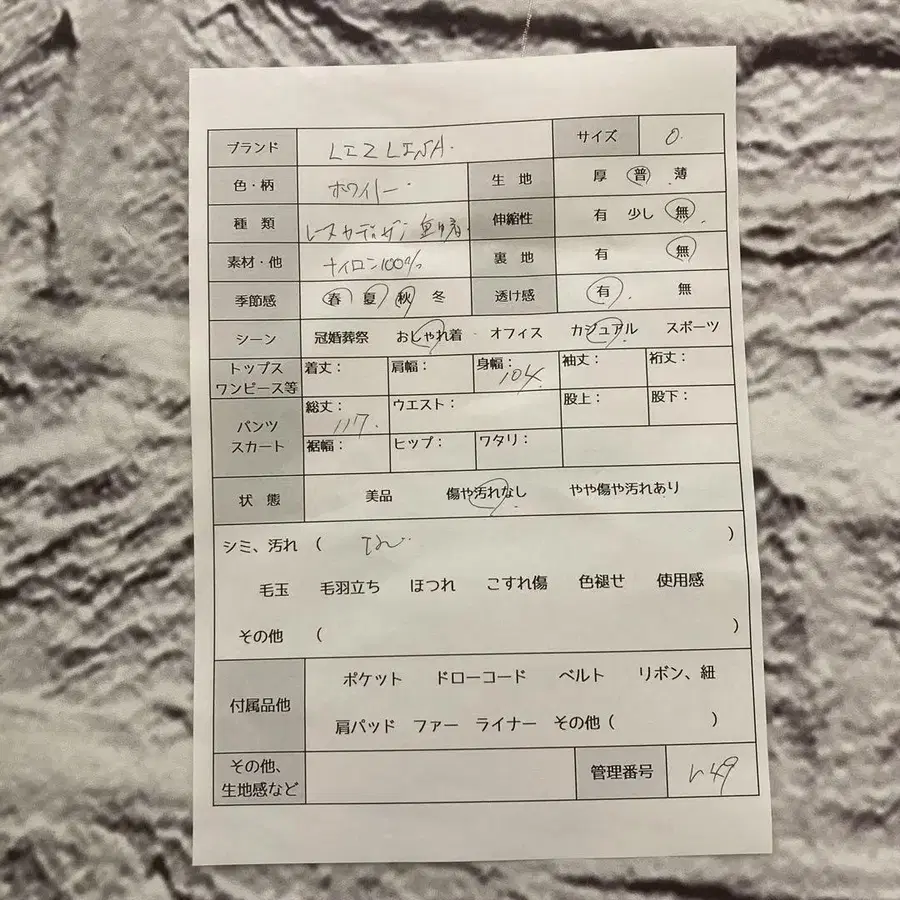 ブランド LIZ LISA. サイズ 0.
色・柄 ホワイト. 生 地 厚 普 薄
種 類 レースカーディガン 伸縮性 有 少し 無
素材・他 ナイロン100% 裏 地 有 無
季節感 春 夏 秋 冬 透け感 有 無
シーン 冠婚葬祭 おしゃれ着 オフィス カジュアル スポーツ
トップス ワンピース等 着丈: 肩幅: 身幅: 104 袖丈: 裄丈:
パンツ スカート 総丈: 117. ウエスト: 股上: 股下:
裾幅: ヒップ: ワタリ:
状 態 美品 傷や汚れなし やや傷や汚れあり
シミ、汚れ ( なし )
毛玉 毛羽立ち ほつれ こすれ傷 色褪せ 使用感
その他 ( )
付属品他 ポケット ドローコード ベルト リボン、紐
肩パッド ファー ライナー その他 ( )
その他、 生地感など 管理番号 49